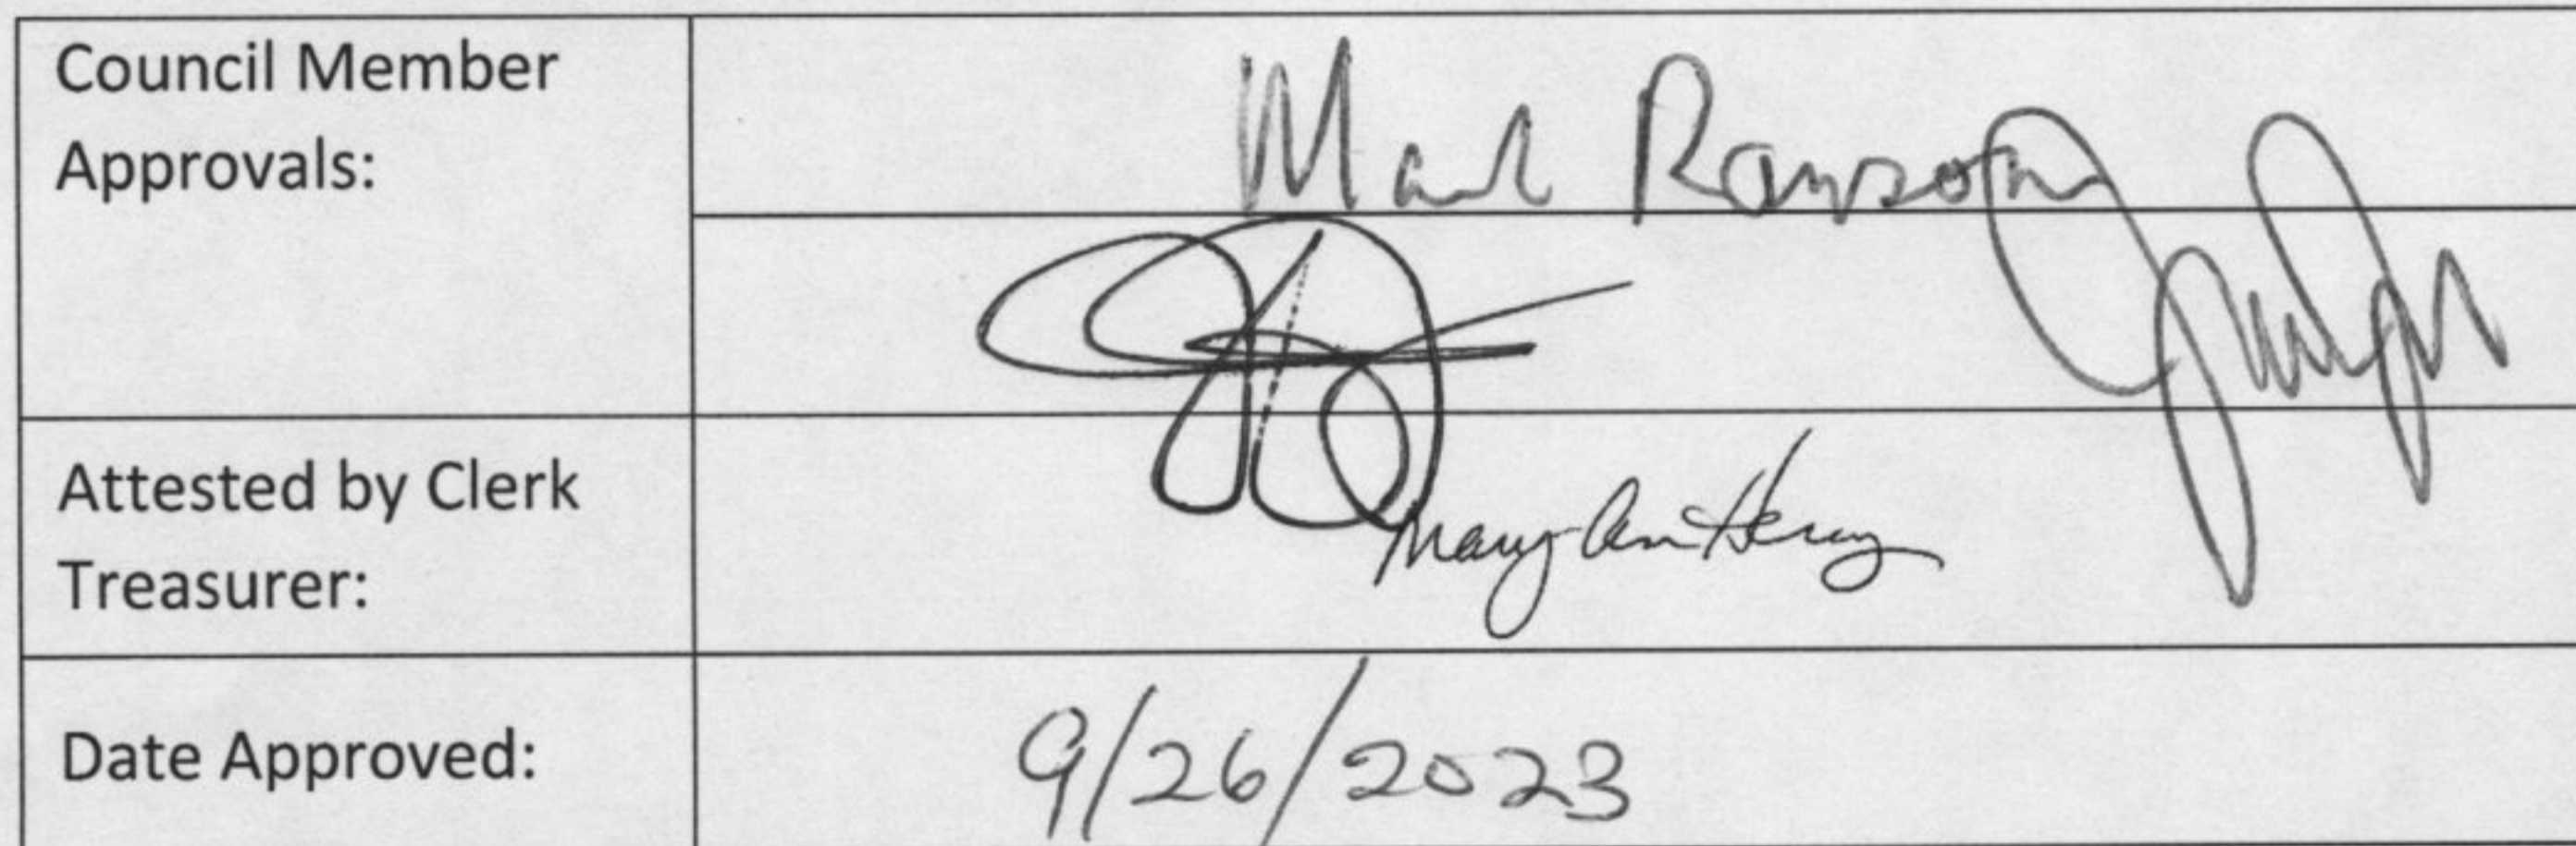 Council Member
Approvals:
Mark Ransom
Attested by Clerk
Treasurer:
Mary Ann Henry
Date Approved:
9/26/2023